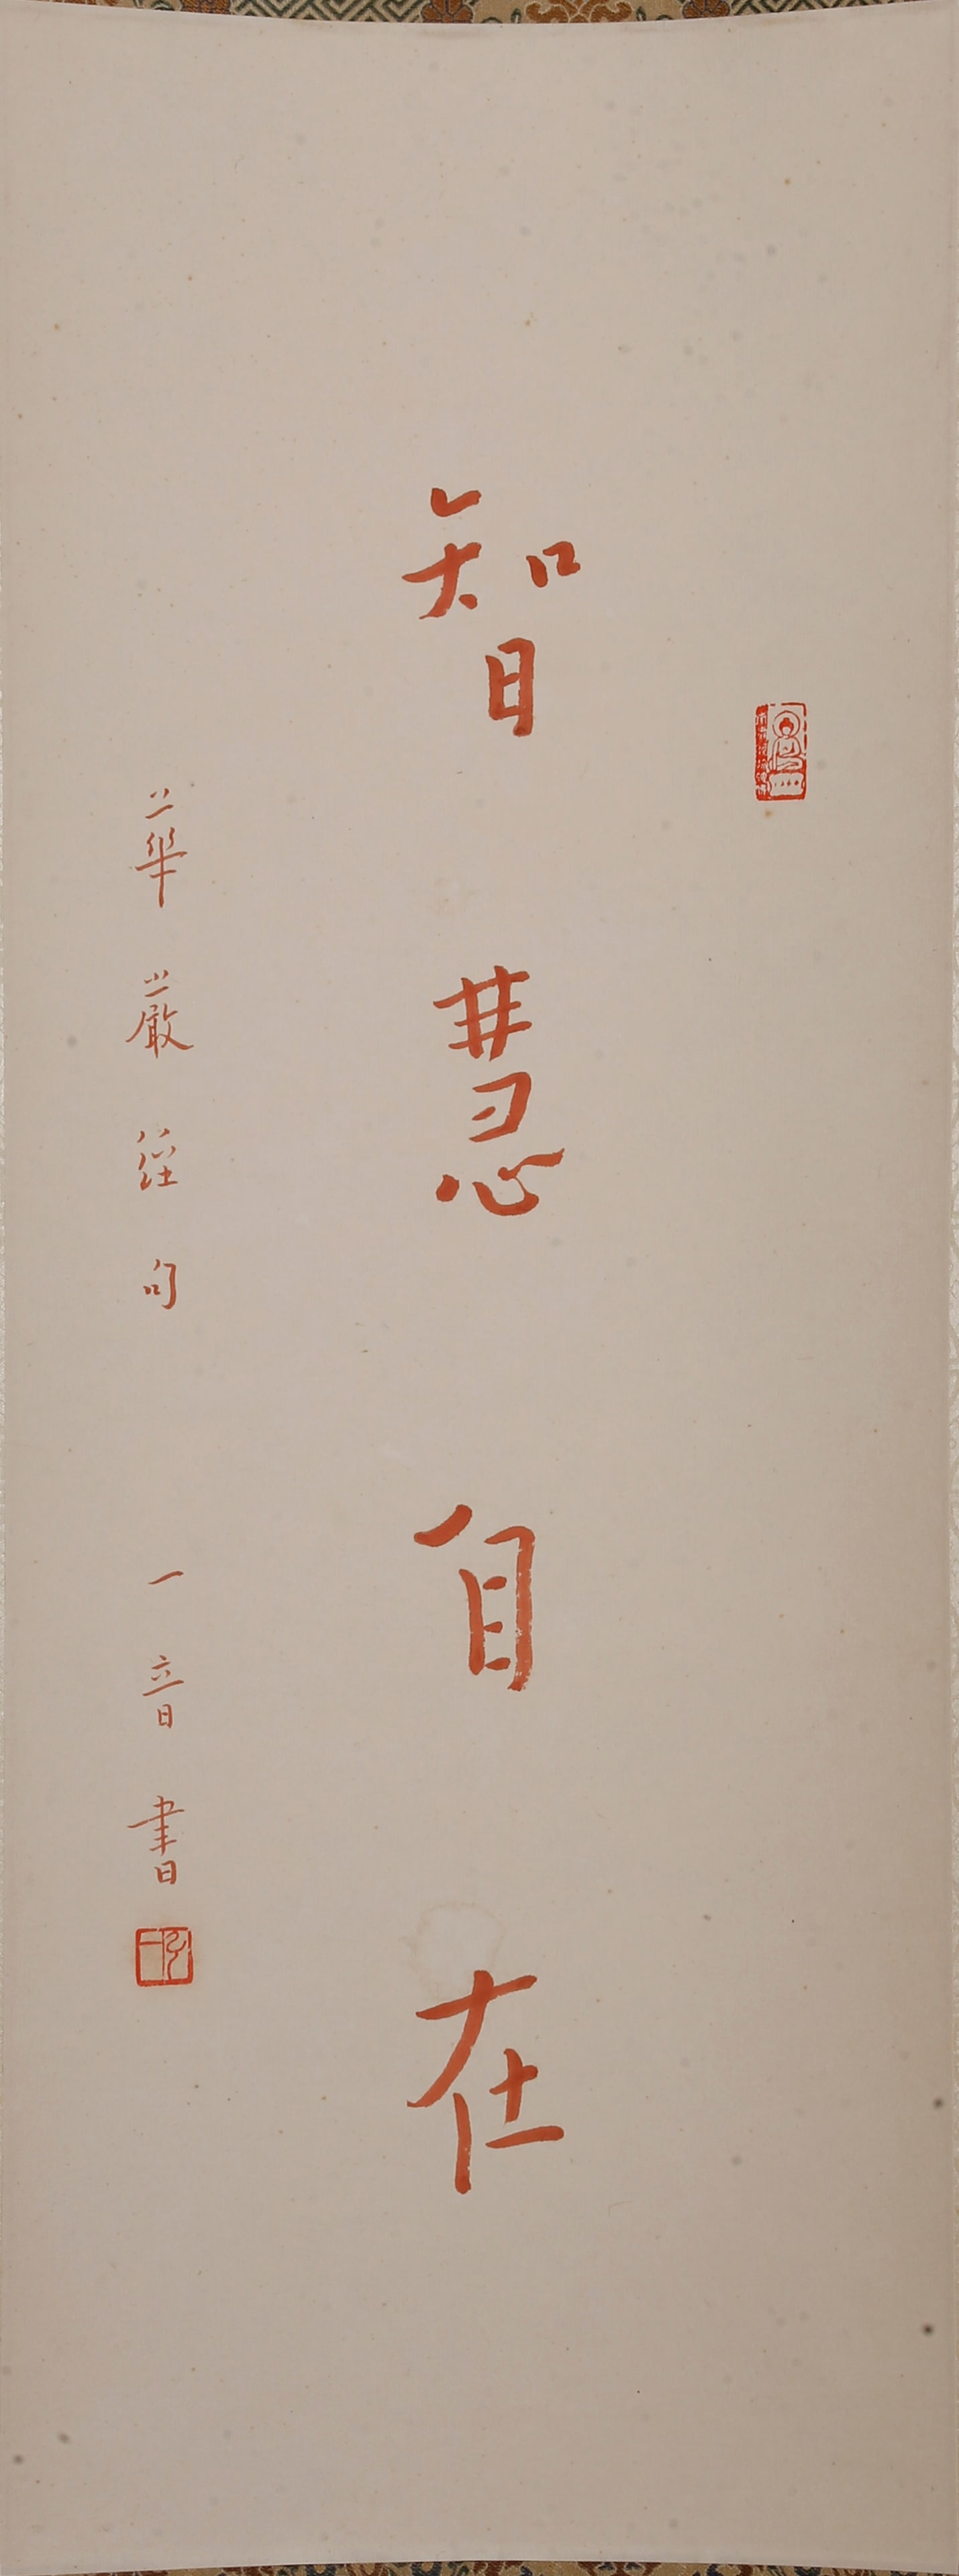 智慧自在
華嚴經句
一音書
弘一